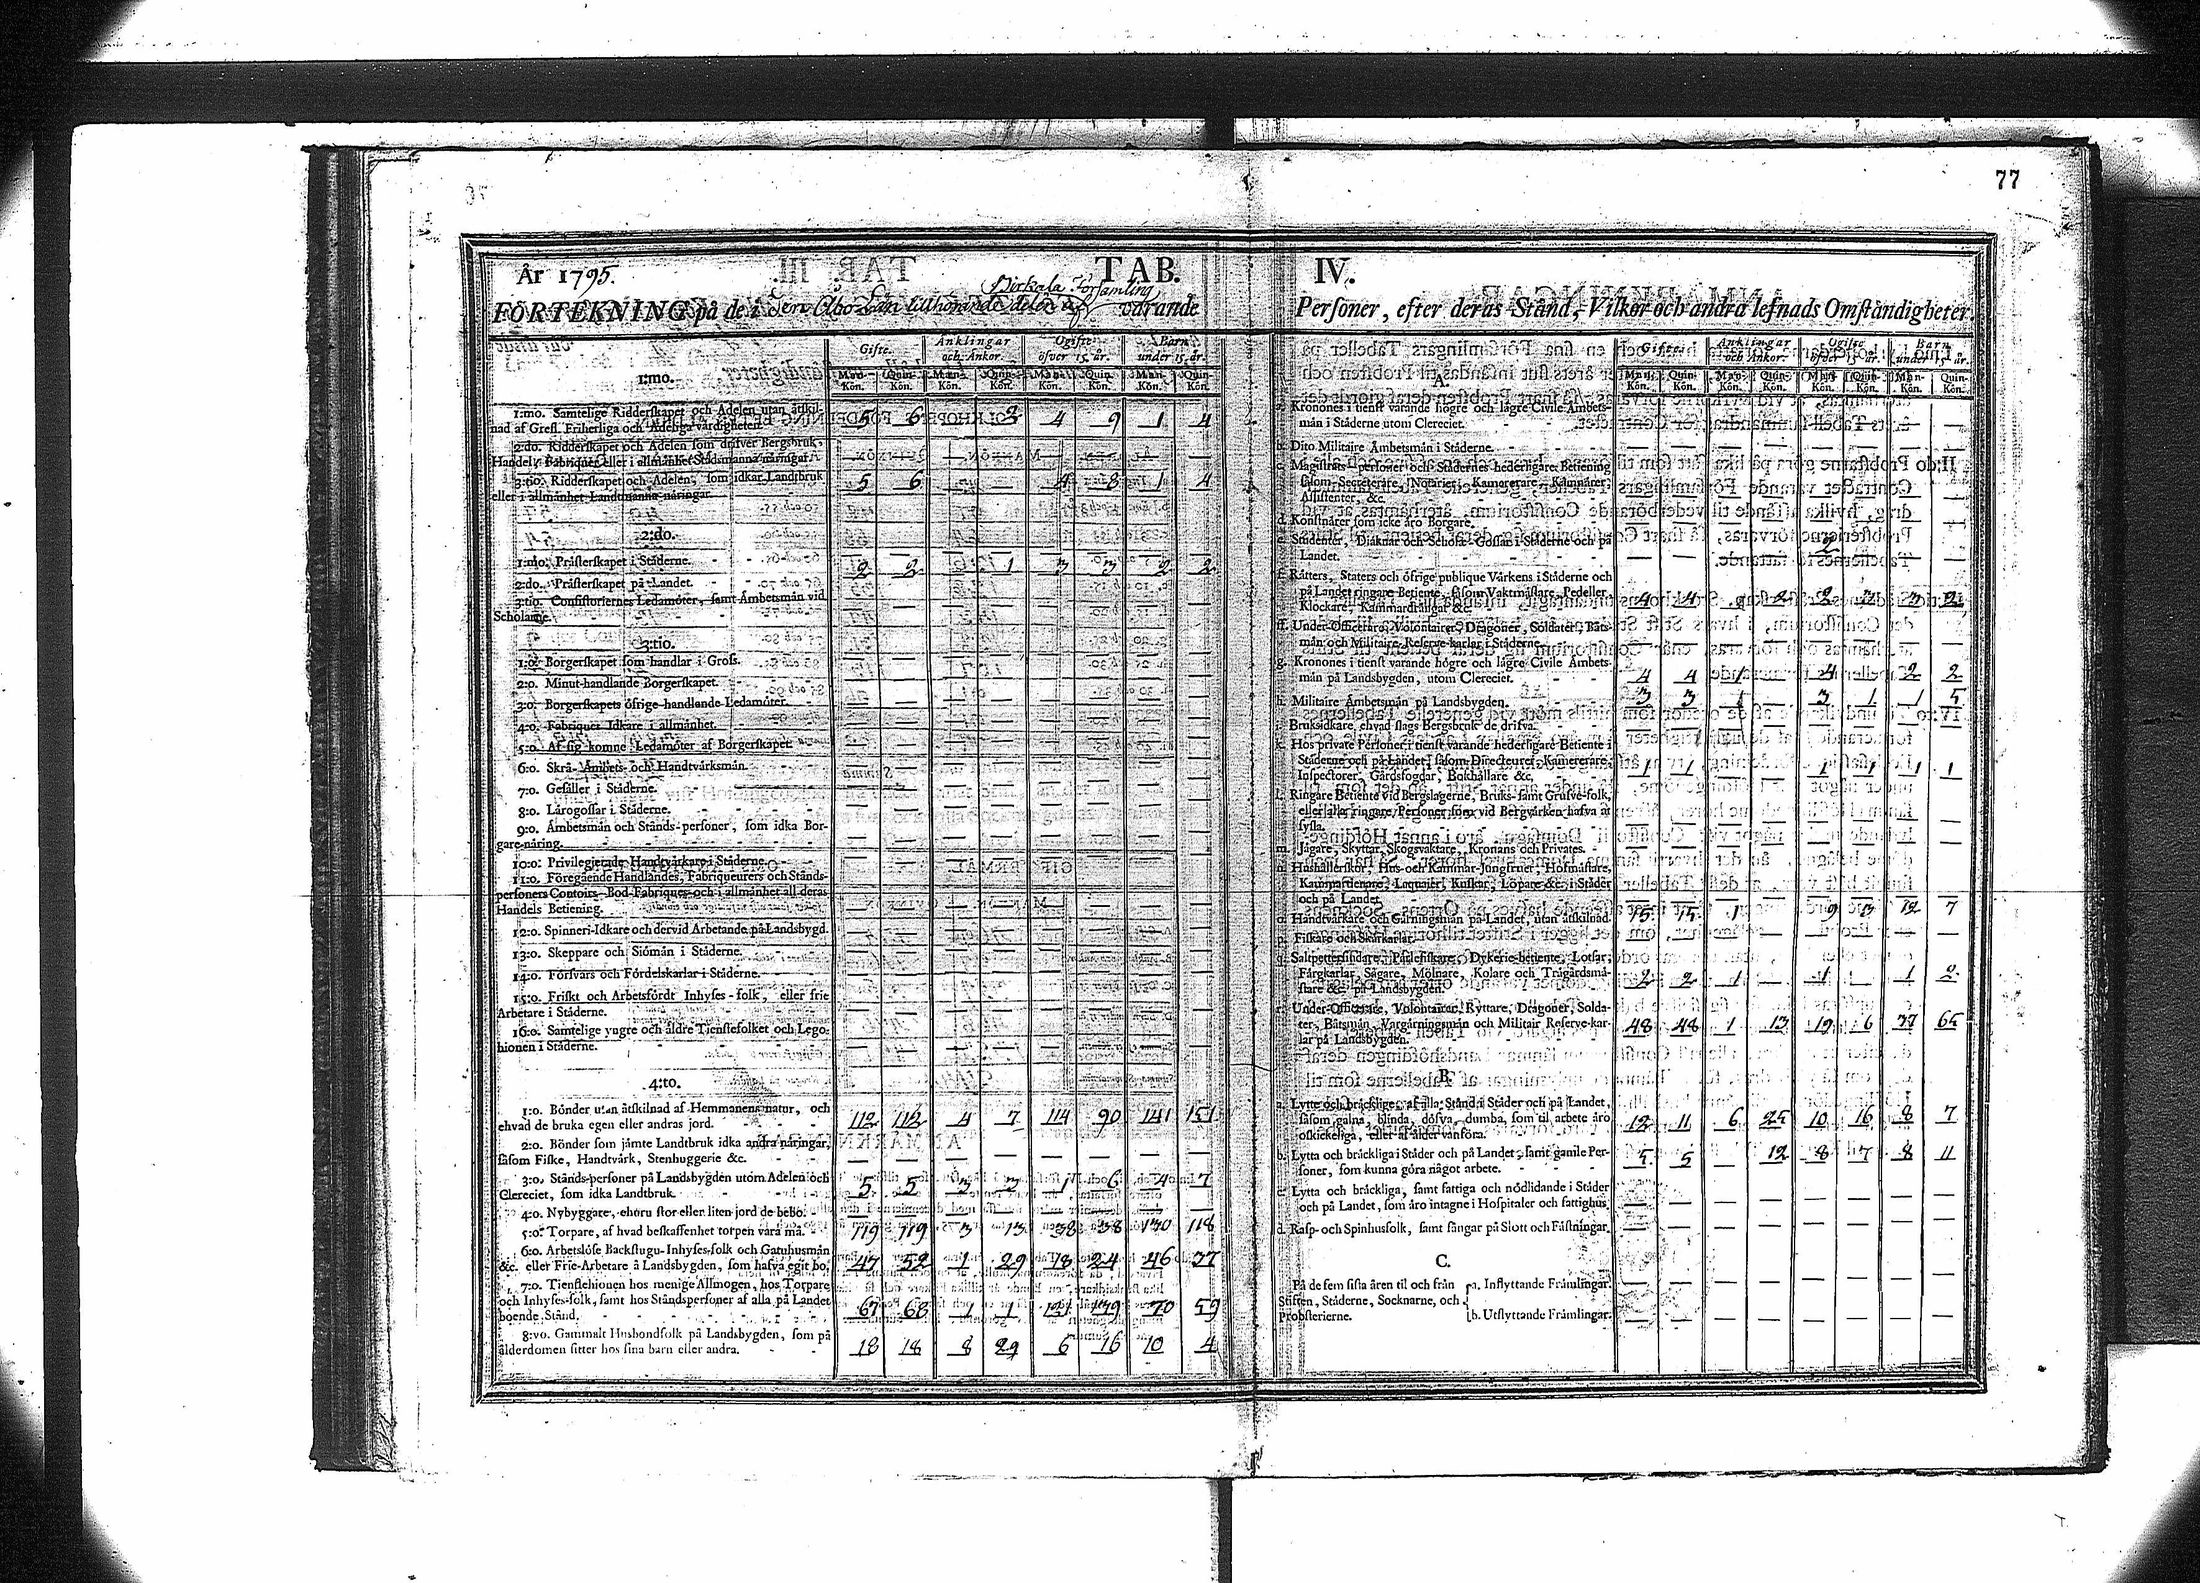 77
År 1795.
TAB. IV.
Birkala Församling
FÖRTEKNING på de i den Åbo Län tillhörande delen af varande Personer, efter deras Stånd, Vilkor och andra lefnads Omständigheter.
Gifte. Änklingar och Änkor. Ogifte öfver 15. år. Barn under 15. år.
Man-Kön. Quin-Kön. Man-Kön. Quin-Kön. Man-Kön. Quin-Kön. Man-Kön. Quin-Kön.
1:mo.
1:mo. Samtelige Ridderskapet och Adelen utan åtskil-
nad af Grefl. Friherliga och Adeliga värdigheten. 5 6 — 2 4 9 1 4
2:do. Ridderskapet och Adelen som drifver Bergsbruk,
Handel, Fabriquer eller i allmänhet Stadsmanna näringar. — — — — — — — —
3:tio. Ridderskapet och Adelen, som idkar Landtbruk 5 6 — — 4 8 1 4
eller i allmänhet Landtmanna näringar.
2:do.
1:mo. Prästerskapet i Städerne. — — — — — — — —
2:do. Prästerskapet på Landet. 2 2 — 1 3 3 2 2
3:tio. Consistoriernes Ledamöter, samt Ämbetsmän vid
Scholarne. — — — — — — — —
3:tio.
1:o. Borgerskapet som handlar i Gross. — — — — — — — —
2:o. Minut-handlande Borgerskapet. — — — — — — — —
3:o. Borgerskapets öfrige handlende Ledamöter. — — — — — — — —
4:o. Fabriquer Idkare i allmänhet. — — — — — — — —
5:o. Af sig komne Ledamöter af Borgerskapet. — — — — — — — —
6:o. Skrå- Ämbets- och Handtvärksmän. — — — — — — — —
7:o. Gesäller i Städerne. — — — — — — — —
8:o. Lärogossar i Städerne. — — — — — — — —
9:o. Ämbetsmän och Stånds-personer, som idka Bor-
gare-näring. — — — — — — — —
10:o. Privilegierade Handtvärkare i Städerne. — — — — — — — —
11:o. Föregående Handlandes, Fabriqueurers och Stånds-
personers Contoirs- Bod- Fabriques- och i allmänhet all deras
Handels Betiening. — — — — — — — —
12:o. Spinneri-Idkare och dervid Arbetande på Landsbygd. — — — — — — — —
13:o. Skeppare och Siömän i Städerne. — — — — — — — —
14:o. Försvars och Fördelskarlar i Städerne. — — — — — — — —
15:o. Friskt och Arbetsfördt Inhyses-folk, eller frie
Arbetare i Städerne. — — — — — — — —
16:o. Samtelige yngre och äldre Tienstefolket och Lego-
hionen i Städerne. — — — — — — — —
4:to.
1:o. Bönder utan åtskilnad af Hemmanens natur, och
ehvad de bruka egen eller andras jord. 112 112 4 7 114 90 141 151
2:o. Bönder som jämte Landtbruk idka andra näringar,
såsom Fiske, Handtvärk, Stenhuggerie &c. — — — — — — — —
3:o. Stånds-personer på Landsbygden utom Adelen och
Clereciet, som idka Landtbruk. 5 5 3 3 1 6 4 7
4:o. Nybyggare, ehuru stor eller liten jord de bebo. — — — — — — — —
5:o. Torpare, af hvad beskaffenhet torpen vara må. 119 119 3 13 38 38 130 118
6:o. Arbetslöse Backstugu-Inhyses-folk och Gatuhusmän
&c. eller Frie-Arbetare å Landsbygden, som hafva egit bo. 47 52 1 29 18 24 46 37
7:o. Tienstehionen hos menige Allmogen, hos Torpare
och Inhyses-folk, samt hos Ståndspersoner af alla på Landet
boende Stånd. 67 68 1 1 121 179 70 59
8:vo. Gammalt Husbondfolk på Landsbygden, som på
ålderdomen sitter hos sina barn eller andra. 18 18 8 29 6 16 10 4
Gifte. Änklingar och Änkor. Ogifte öfver 15. år. Barn under 15. år.
Man-Kön. Quin-Kön. Man-Kön. Quin-Kön. Man-Kön. Quin-Kön. Man-Kön. Quin-Kön.
A.
a. Kronones i tienst varande högre och lägre Civile Ämbets-
män i Städerne utom Clereciet. — — — — — — — —
b. Dito Militaire Ämbetsmän i Städerne. — — — — — — — —
c. Magistrats-personer och Städernes hederligare Betiening
såsom Secreterare, Notarier, Kamererare, Kämnärer,
Assistenter, &c. — — — — — — — —
d. Konstnärer som icke äro Borgare. — — — — — — — —
e. Studenter, Diäknar och Schole-Gossar i Städerne och på
Landet. — — — — 2 — — —
f. Rätters, Staters och öfrige publique Värkens i Städerne och
på Landet ringare Betiente, såsom Vaktmästare, Pedeller,
Klockare, Kammardrängar &c. 4 4 — 2 2 3 3 2
ff. Under-Officerare, Volontairer, Dragoner, Soldater, Båts-
män och Militaire Reserve-karlar i Städerne. — — — — — — — —
g. Kronones i tienst varande högre och lägre Civile Ämbets-
män på Landsbygden, utom Clereciet. 4 4 1 — 4 — 2 2
h. Militaire Ämbetsmän på Landsbygden. 3 3 1 — 3 1 1 5
i. Bruksidkare, ehvad slags Bergsbruk de drifva. — — — — — — — —
k. Hos private Personer i tienst varande hederligare Betiente i
Städerne och på Landet, såsom Directeurer, Kamererare,
Inspectorer, Gårdsfogdar, Bokhållare &c. 1 1 — — 1 1 1 1
l. Ringare Betiente vid Bergslagerne, Bruks- samt Grufve-folk,
eller alla ringare Personer som vid Bergvärken hafva at
syssla. — — — — — — — —
m. Jägare, Skyttar, Skogsvaktare, Kronans och Privates. — — — — — — — —
n. Hushållerskor, Hus- och Kammar-Jungfruer, Hofmästare,
Kammartienare, Laquaier, Kuskar, Löpare &c. i Städer
och på Landet. — — — — — — — —
o. Handtvärkare och Gärningsmän på Landet, utan åtskilnad. 15 15 1 — 9 3 12 7
p. Fiskare och Skärkarlar. — — — — — — — —
q. Saltpettersiudare, Pärlefiskare, Dykerie-betiente, Lotsar,
Färgkarlar, Sågare, Mölnare, Kolare och Trägårdsmä-
stare &c. på Landsbygden. 2 2 1 — 1 — 1 2
r. Under-Officerare, Volontairer, Ryttare, Dragoner, Solda-
ter, Båtsmän, Vargärningsmän och Militair Reserve-kar-
lar på Landsbygden. 48 48 1 13 19 6 37 65
B.
a. Lytte och bräcklige, af alla Stånd i Städer och på Landet,
såsom galna, blinda, döfva, dumba, som til arbete äro
oskickeliga, eller af ålder vanföra. 12 11 6 25 10 16 8 7
b. Lytta och bräckliga i Städer och på Landet, samt gamle Per-
soner, som kunna göra något arbete. 5 5 — 12 8 7 8 11
c. Lytta och bräckliga, samt fattiga och nödlidande i Städer
och på Landet, som äro intagne i Hospitaler och fattighus. — — — — — — — —
d. Rasp- och Spinhusfolk, samt fångar på Slott och Fästningar. — — — — — — — —
C.
På de fem sista åren til och från a. Inflyttande Främlingar. — — — — — — — —
Stiften, Städerne, Socknarne, och
Probsterierne. b. Utflyttande Främlingar. — — — — — — — —